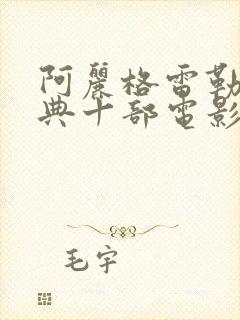 阿麗格雷勒
典十部電影
毛宇